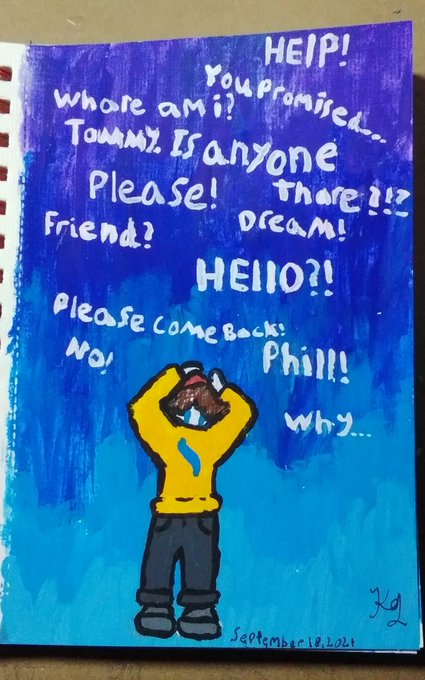 HEIP!
You Promised...
Whare am i?
Tommy. Is anyone
Please! Thare?!?
Friend? Dream!
HEIIO?!
Please come Back!
No! Phill!
Why...
KL
September 18, 2021